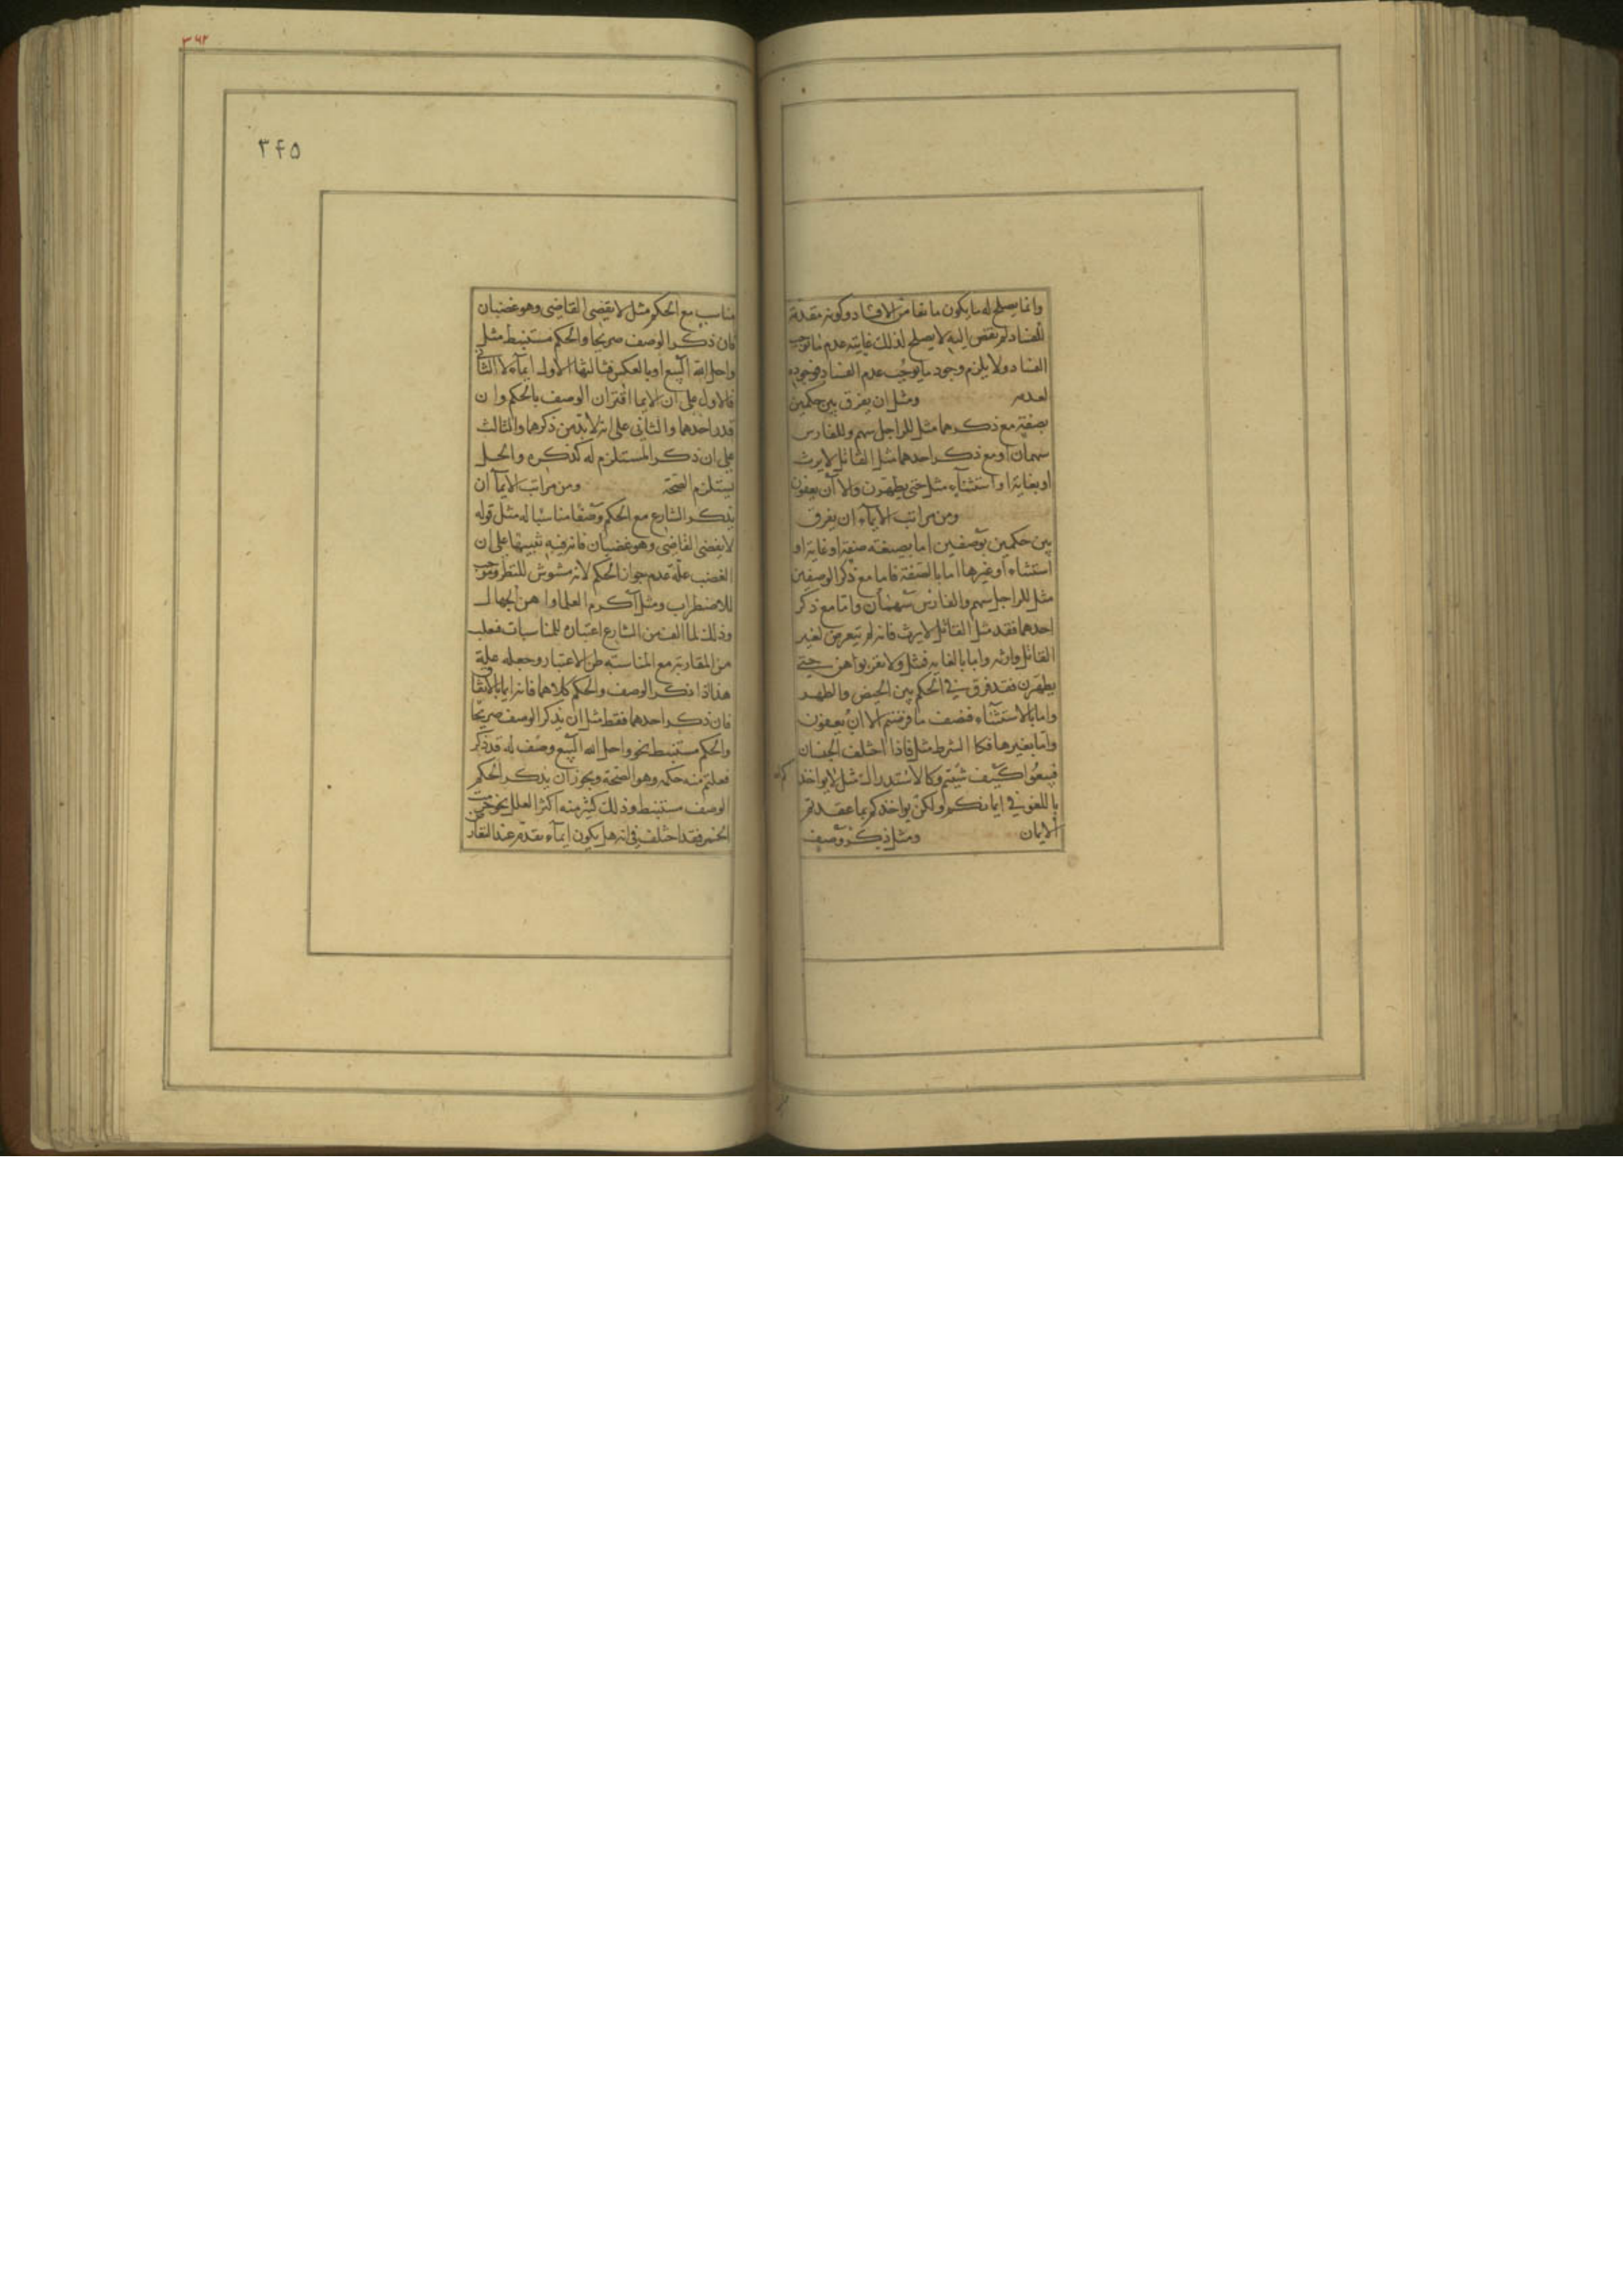 وانما يصلح له ما يكون مانعا من الافساد وكونه مقدمة
للفساد لم يفض اليه لا يصلح لذلك غايته عدم ما يوجب
الفساد ولا يلزم وجود ما يوجب عدم الفساد فوجوده
لعدمه ومثل ان يفرق بين حكمين
بصفة مع ذكرهما مثل للراجل سهم وللفارس
سهمان او مع ذكر احدهما مثل القاتل لا يرث
او بغاية او استثناء مثل حتى يطهرن والا ان يعفون
ومن مراتب الايماء ان يفرق
بين حكمين بوصفين اما بصيغة صفة او غاية او
استثناء او غيرها اما بالصفة فاما مع ذكر الوصفين
مثل للراجل سهم والفارس سهمان واما مع ذكر
احدهما فقد مثل القاتل لا يرث فانه لم يتعرض لغير
القاتل وارثه واما بالغاية فمثل ولا تقربوا هن حتى
يطهرن فقد فرق في الحكم بين الحيض والطهر
واما بالاستثناء فنصف ما فرضتم الا ان يعفون
واما بغيرها فكا الشرط مثل فاذا اختلف الجنسان
فبيعوا كيف شئتم وكالاستدراك مثل لا يواخذ كم الله
باللغو في ايمانكم ولكن يواخذكم بما عقدتم
الايمان ومثل ذكر وصف
۳۶۲
۳۴۵
مناسب مع الحكم مثل لا يقضى القاضى وهو غضبان
فان ذكر الوصف صريحا والحكم مستنبط مثل
واحل الله البيع او بالعكس فثالثها الاول ايماء لا الثانى
فالاول على ان الايما اقتران الوصف بالحكم وان
قدر احدهما والثانى على انه لا بد من ذكرهما والثالث
على ان ذكر المستلزم له كذكره والحل
يستلزم الصحة ومن مراتب الايماء ان
يذكر الشارع مع الحكم وصفا مناسبا له مثل قوله
لا يقضى القاضى وهو غضبان فانه فيه تنبيها على ان
الغضب علة عدم جواز الحكم لانه مشوش للنظر وموجب
للاضطراب ومثل اكرم العلما واهن الجهال
وذلك لما الف من الشارع اعتباره للمناسبات فغلب
من المقاربة مع المناسبة ظن الاعتبار وجعله علة
هذا اذا ذكر الوصف والحكم كلاهما فانه ايما بالاتفاق
فان ذكر احدهما فقط مثل ان يذكر الوصف صريحا
والحكم مستنبط نحو واحل الله البيع وصف له قد ذكر
فعلتم منه حكمه وهو الصحة ويجوز ان يذكر الحكم
الوصف مستنبط وذلك كثير منه اكثر العلل نحو حرمت
الخمر فقد اختلف فى انه هل يكون ايماء يقدم عند التعارض